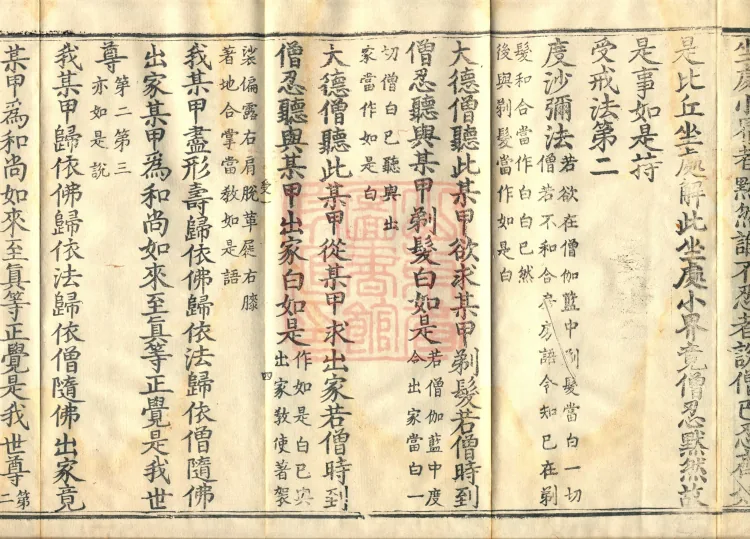 坐處小界者默然誰不忍者說僧已忍
是比丘坐處解此坐處小界竟僧忍默然故
是事如是持
受戒法第二
度沙彌法
若欲在僧伽藍中剃髮當白一切
僧若不和合房房語令知已在剃
髮和合當作白白已然
後與剃髮當作如是白
大德僧聽此某甲欲求某甲剃髮若僧時到
僧忍聽與某甲剃髮白如是
若僧伽藍中度
令出家當白一
切僧白已聽與出
家當作如是白
大德僧聽此某甲從某甲求出家若僧時到
僧忍聽與某甲出家白如是
作如是白已與
出家教使著袈
受一
四
裟偏露右肩脫革屣右膝
著地合掌當教如是語
我某甲盡形壽歸依佛歸依法歸依僧隨佛
出家某甲為和尚如來至真等正覺是我世
尊
第二第三
亦如是說
我某甲歸依佛歸依法歸依僧隨佛出家竟
某甲為和尚如來至真等正覺是我世尊
第
二